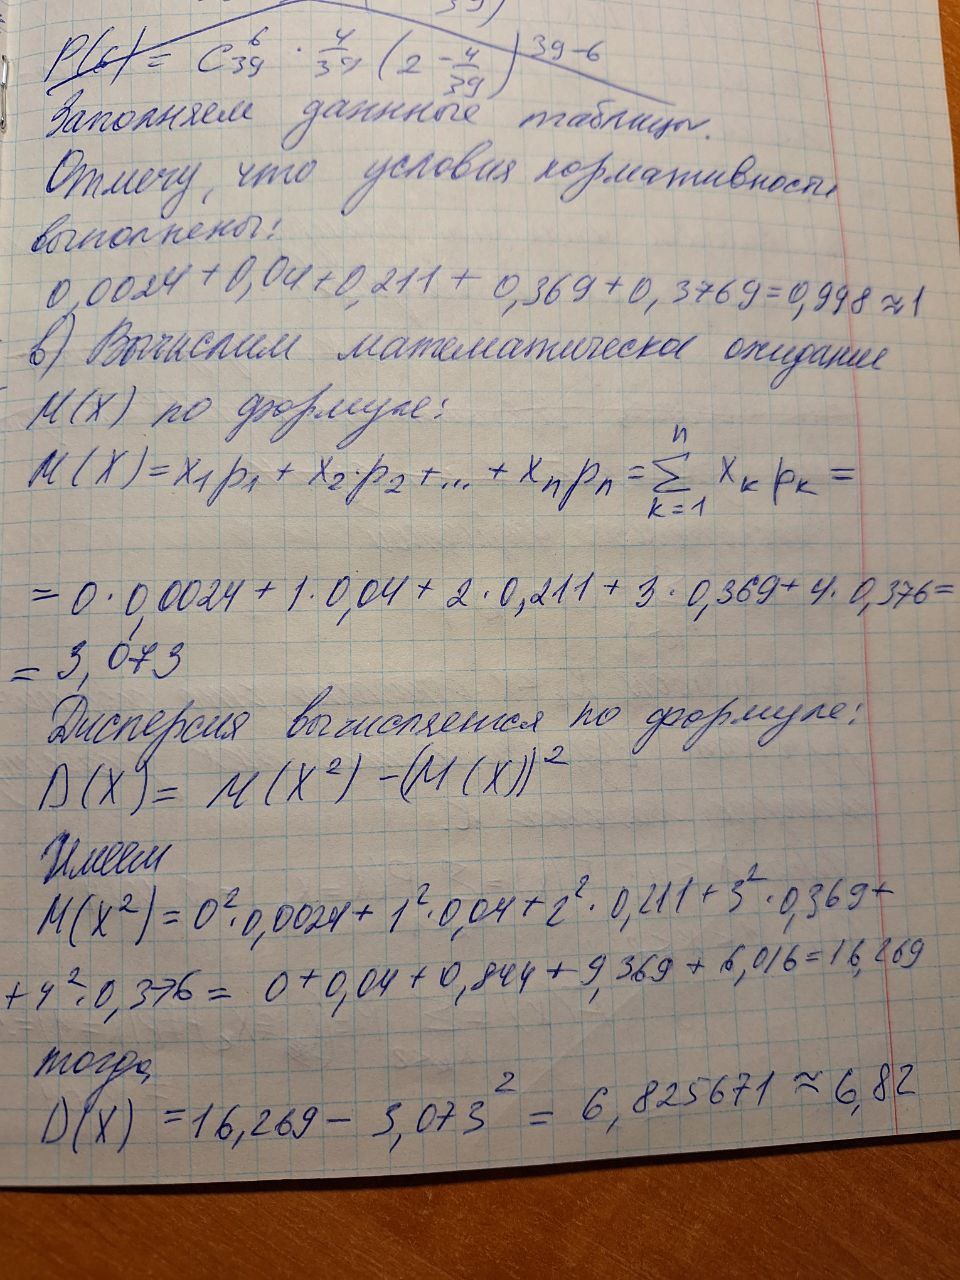 39)
P(6) = C⁶₃₉ · 4/39 (2 - 4/39)³⁹⁻⁶
Заполняем данные таблицы.
Отмечу, что условия нормативности
выполнены:
0,0024 + 0,04 + 0,211 + 0,369 + 0,3769 = 0,998 ≈ 1
в) Вычислим математическое ожидание
M(X) по формуле:
M(X) = x₁p₁ + x₂·p₂ + ... + xₙpₙ = ∑ₖ₌₁ⁿ xₖ pₖ =
= 0 · 0,0024 + 1 · 0,04 + 2 · 0,211 + 3 · 0,369 + 4 · 0,376 =
= 3,073
Дисперсия вычисляется по формуле:
D(X) = M(X²) - (M(X))²
Имеем
M(X²) = 0² · 0,0024 + 1² · 0,04 + 2² · 0,211 + 3² · 0,369 +
+ 4² · 0,376 = 0 + 0,04 + 0,844 + 9,369 + 6,016 = 16,269
тогда
D(X) = 16,269 - 3,073² = 6,825671 ≈ 6,82